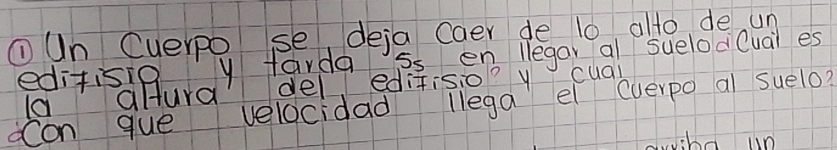 ① Un Cuerpo se deja caer de lo alto de un
edifisio y tarda 5s en llegar al suelo ¿Cual es
la altura del edifisio? y cual
¿Con que velocidad llega el cuerpo al suelo?
arriba un